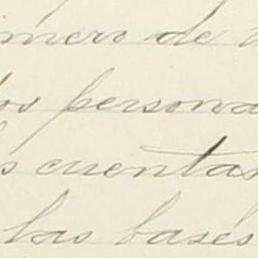 imero de
os persona
s cuentas
las bases